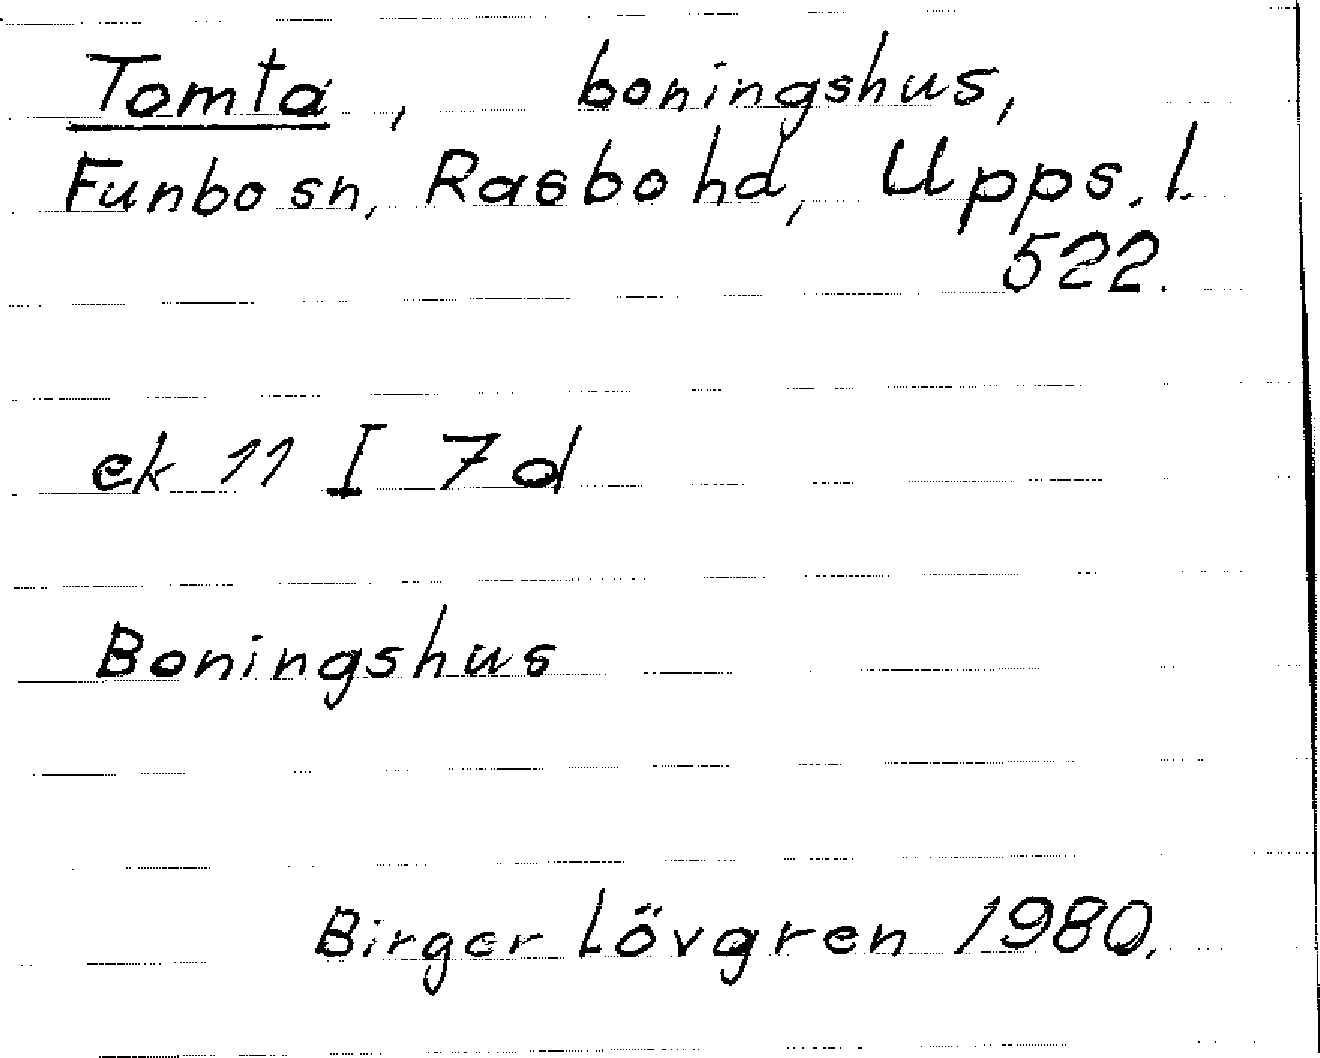 Tomta, boningshus,
Funbo sn, Rasbo hd, Upps. l.
522.
ek 11 I 7 d
Boningshus
Birger Lövgren 1980.